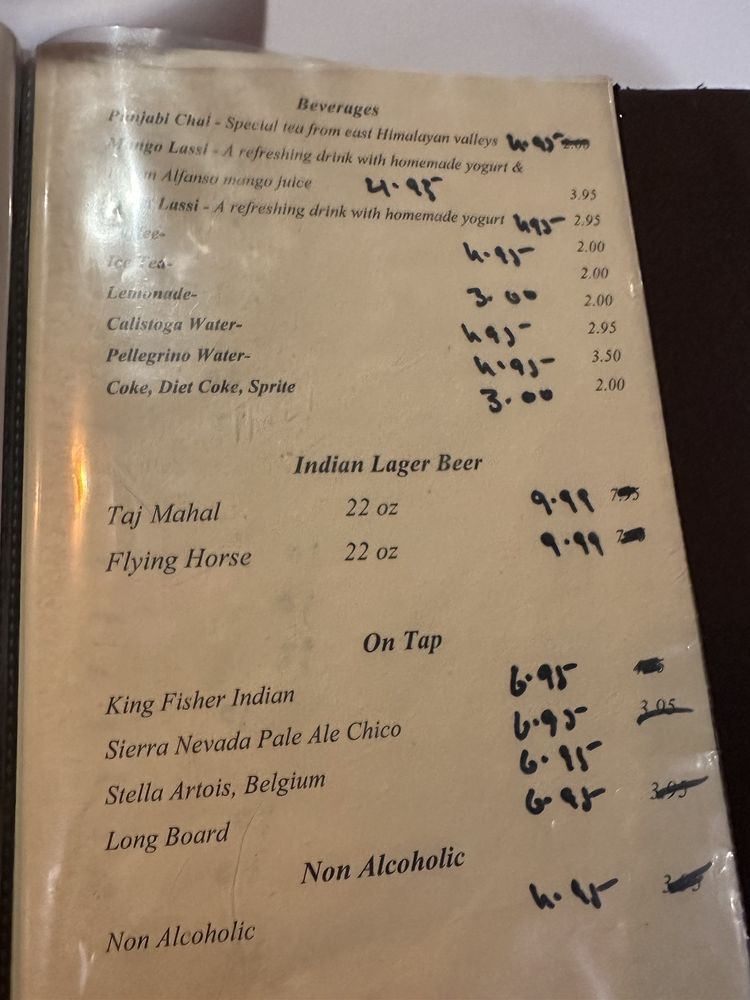 Beverages
Punjabi Chai - Special tea from east Himalayan valleys 4.95 2.00
Mango Lassi - A refreshing drink with homemade yogurt &
Alfanso mango juice 4.95 3.95
Lassi - A refreshing drink with homemade yogurt 4.95 2.95
4.95 2.00
Ice Tea- 3.00 2.00
Lemonade- 4.95 2.00
Calistoga Water- 4.95 2.95
Pellegrino Water- 3.00 3.50
Coke, Diet Coke, Sprite 2.00
Indian Lager Beer
Taj Mahal 22 oz 9.99 7.95
Flying Horse 22 oz 9.99
On Tap
King Fisher Indian 6.95
Sierra Nevada Pale Ale Chico 6.95 3.95
Stella Artois, Belgium 6.95
Long Board 6.95 3.95
Non Alcoholic
Non Alcoholic 4.95